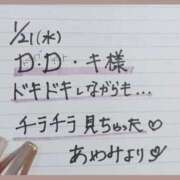 1/21(水)
D.D・キ様
ドキドキしながらも…
チラチラ見ちゃった♡
あゆみより